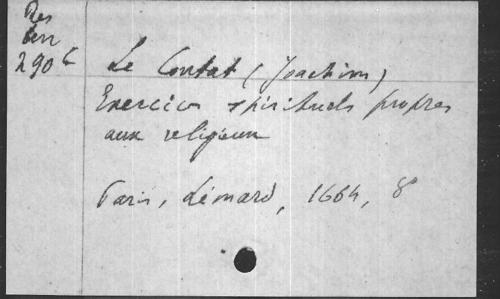 Res
290 c
Le Contat (Joachim)
Exercices spirituels propres
aux religieux
Paris, Lémard, 1664, 8°